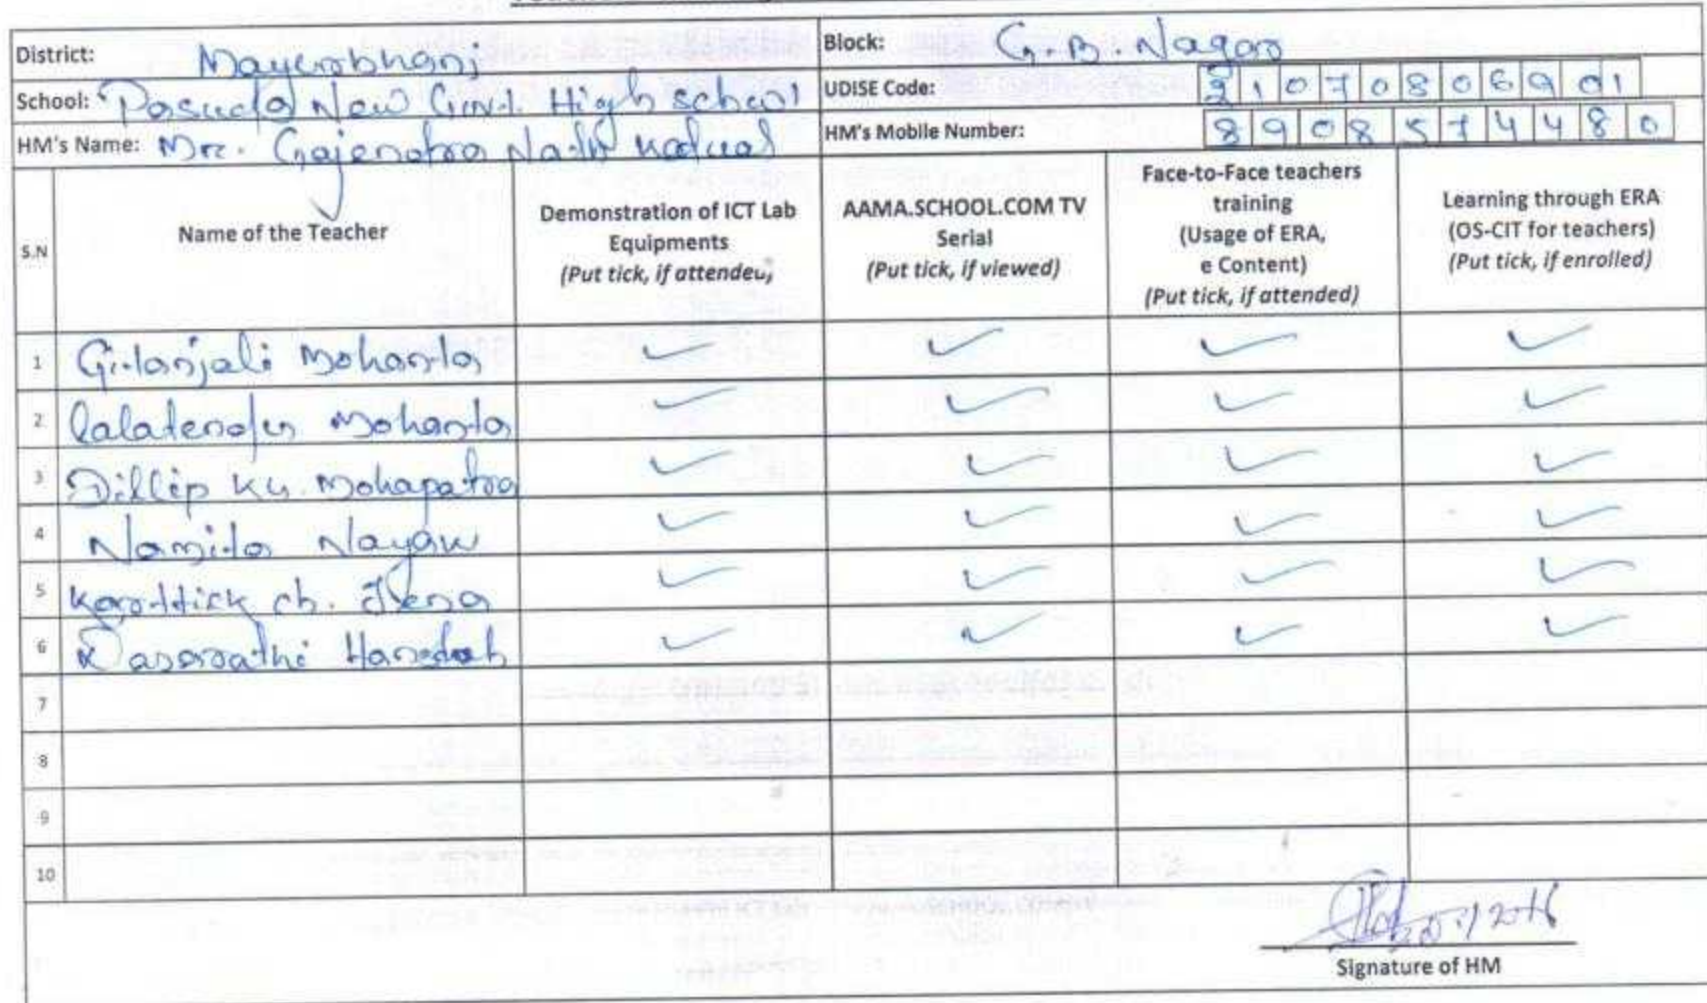 District: Mayurbhanj Block: G.B. Nagar
School: Pasuda New Govt. High School UDISE Code: 21070806901
HM's Name: Mr. Gajendra Nath HM's Mobile Number: 8908574480
S.N Name of the Teacher Demonstration of ICT Lab Equipments (Put tick, if attended) AAMA.SCHOOL.COM TV Serial (Put tick, if viewed) Face-to-Face teachers training (Usage of ERA, e Content) (Put tick, if attended) Learning through ERA (OS-CIT for teachers) (Put tick, if enrolled)
1 Gitanjali Mohanta ✓ ✓ ✓ ✓
2 Lalatendu Mohanta ✓ ✓ ✓ ✓
3 Dillip Ku. Mohapatra ✓ ✓ ✓ ✓
4 Namita Nayak ✓ ✓ ✓ ✓
5 Karttick ch. Jena ✓ ✓ ✓ ✓
6 Dasarathi Hansdah ✓ ✓ ✓ ✓
7
8
9
10
Signature of HM